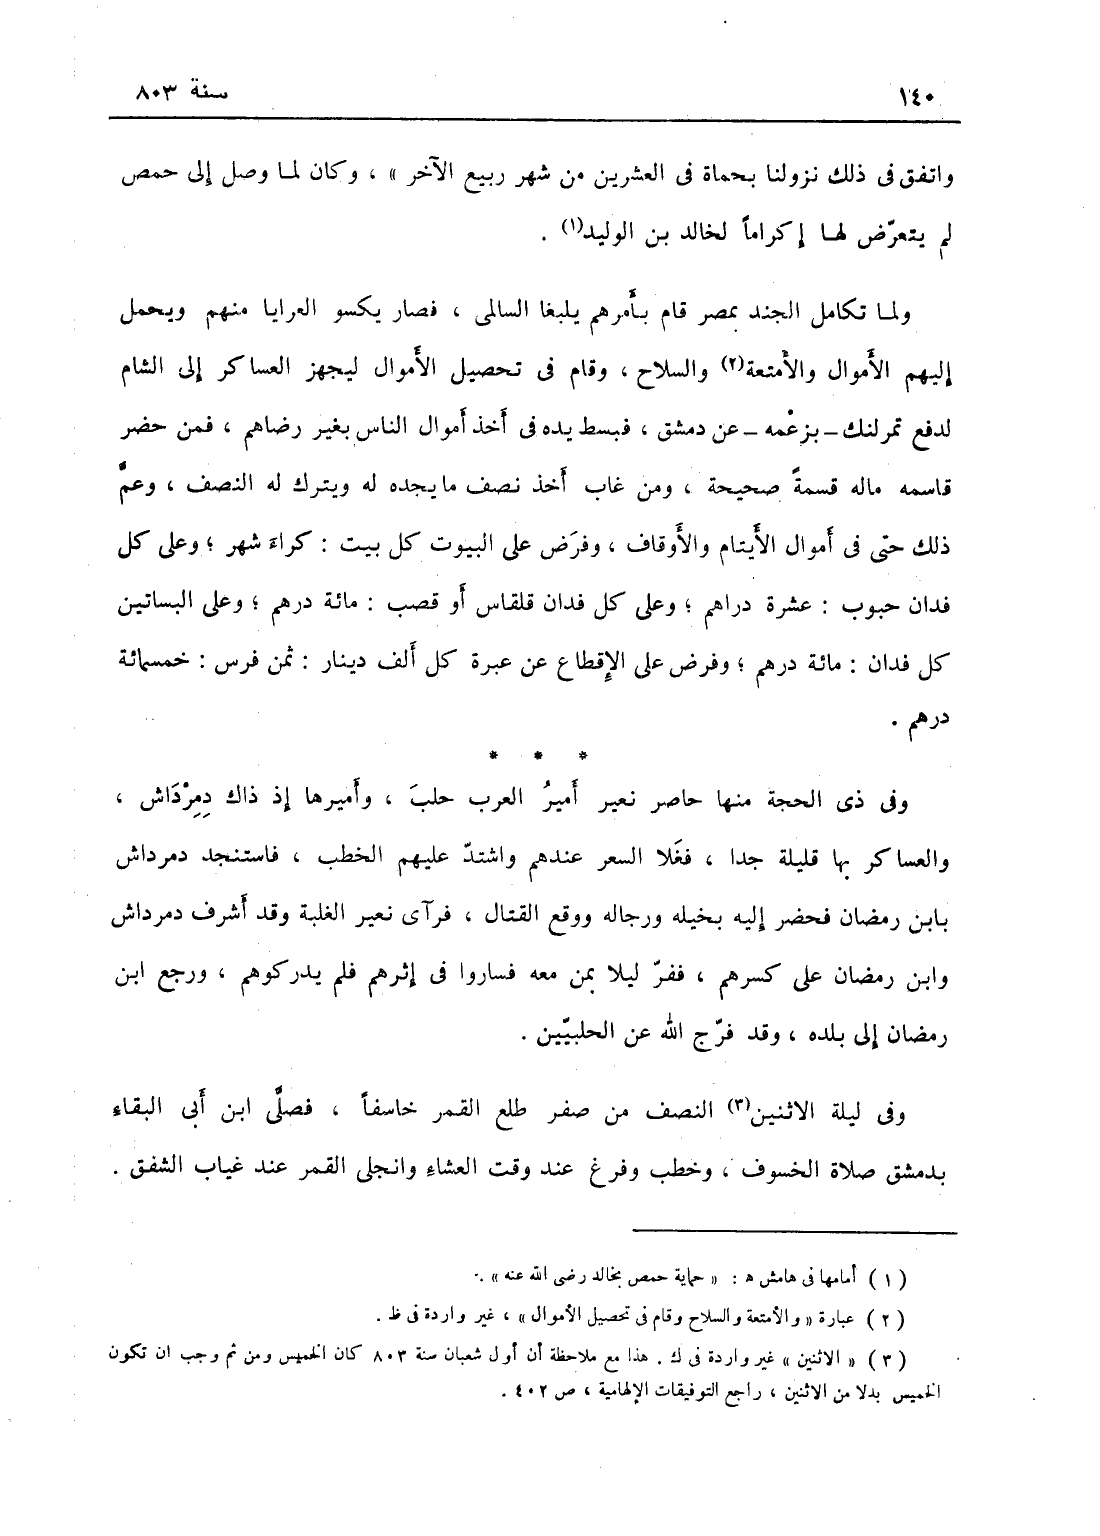 ١٤٠
سنة ٨٠٣
واتفق فى ذلك نزولنا بحماة فى العشرين من شهر ربيع الآخر » ، وكان لمـا وصل إلى حمص
لم يتعرّض لهـا إكراماً لخالد بن الوليد(١) .
ولمـا تكامل الجند بمصر قام بأمرهم يلبغا السالمى ، فصار يكسو العرايا منهم ويحمل
إليهم الأموال والأمتعة(٢) والسلاح ، وقام فى تحصيل الأموال ليجهز العساكر إلى الشام
لدفع تمرلنك ــ بزعْمه ــ عن دمشق ، فبسط يده فى أخذ أموال الناس بغير رضاهم ، فمن حضر
قاسمه ماله قسمةً صحيحة ، ومن غاب أخذ نصف ما يجده له ويترك له النصف ، وعمّ
ذلك حتى فى أموال الأيتام والأوقاف ، وفرَض على البيوت كل بيت : كراءَ شهر ؛ وعلى كل
فدان حبوب : عشرة دراهم ؛ وعلى كل فدان قلقاس أو قصب : مائة درهم ؛ وعلى البساتين
كل فدان : مائة درهم ؛ وفرض على الإقطاع عن عبرة كل ألف دينار : ثمن فرس : خمسمائة
درهم .
* * *
وفى ذى الحجة منها حاصر نعير أميرُ العرب حلبَ ، وأميرها إذ ذاك دِمِرْدَاش ،
والعساكر بها قليلة جدا ، فغَلا السعر عندهم واشتدّ عليهم الخطب ، فاستنجد دمرداش
بابن رمضان فحضر إليه بخيله ورجاله ووقع القتال ، فرآى نعير الغلبة وقد أشرف دمرداش
وابن رمضان على كسرهم ، ففرّ ليلا بمن معه فساروا فى إثرهم فلم يدركوهم ، ورجع ابن
رمضان إلى بلده ، وقد فرّج الله عن الحلبيّين .
وفى ليلة الاثنين(٣) النصف من صفر طلع القمر خاسفاً ، فصلَّى ابن أبى البقاء
بدمشق صلاة الخسوف ، وخطب وفرغ عند وقت العشاء وانجلى القمر عند غياب الشفق .
( ١ ) أمامها فى هامش ه : « حماية حمص بخالد رضى الله عنه » .
( ٢ ) عبارة « والأمتعة والسلاح وقام فى تحصيل الأموال » ، غير واردة فى ظ .
( ٣ ) « الاثنين » غير واردة فى ك . هذا مع ملاحظة أن أول شعبان سنة ٨٠٣ كان الخميس ومن ثم وجب ان تكون
الخميس بدلا من الاثنين ، راجع التوفيقات الإلهامية ، ص ٤٠٢ .